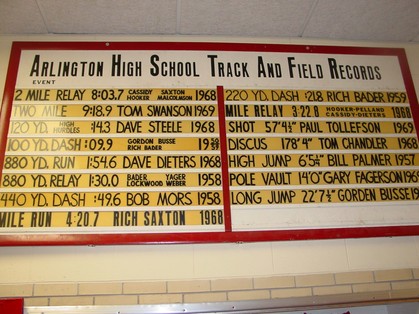 ARLINGTON HIGH SCHOOL TRACK AND FIELD RECORDS
EVENT
2 MILE RELAY 8:03.7 CASSIDY SAXTON HOOKER MALCOMSON 1968
TWO MILE 9:18.9 TOM SWANSON 1969
120 YD. HIGH HURDLES :14.3 DAVE STEELE 1968
100 YD. DASH :09.9 GORDON BUSSE RICH BADER
880 YD. RUN 1:54.6 DAVE DIETERS 1968
880 YD. RELAY 1:30.0 BADER YAGER LOCKWOOD WEBER 1958
440 YD. DASH :49.6 BOB MORS 1958
MILE RUN 4:20.7 RICH SAXTON 1968
220 YD. DASH :21.8 RICH BADER 1959
MILE RELAY 3:22.8 HOOKER-PELLAND CASSIDY-DIETERS 1968
SHOT 57'4½" PAUL TOLLEFSON 1969
DISCUS 178'4" TOM CHANDLER 1968
HIGH JUMP 6'5¼" BILL PALMER 1957
POLE VAULT 14'0" GARY FAGERSON 1969
LONG JUMP 22'7½" GORDEN BUSSE